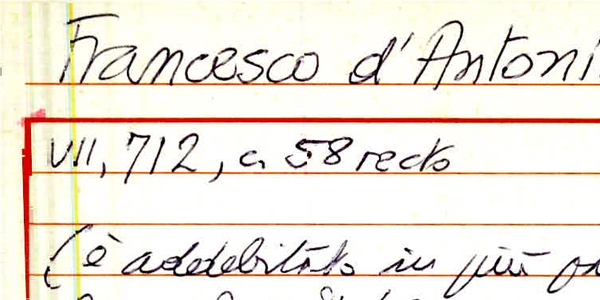 Francesco d'Antoni
VII, 712, c. 58 recto
(è addebitato in più